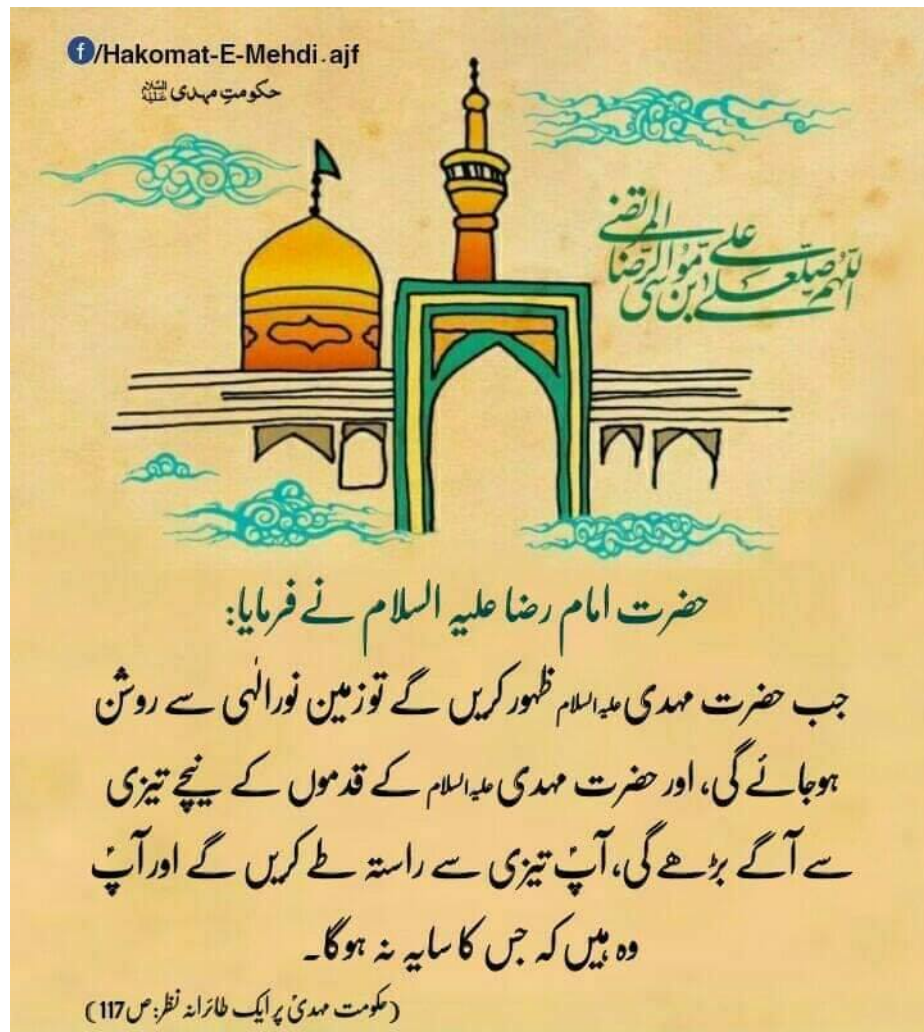 /Hakomat-E-Mehdi.ajf
حکومتِ مہدی علیہ السلام
اللّٰهم صلّ علی علی بن موسی الرّضا المرتضی
حضرت امام رضا علیہ السلام نے فرمایا:
جب حضرت مہدی علیہ السلام ظہور کریں گے تو زمین نورِ الٰہی سے روشن
ہو جائے گی، اور حضرت مہدی علیہ السلام کے قدموں کے نیچے تیزی
سے آگے بڑھے گی، آپؑ تیزی سے راستہ طے کریں گے اور آپؑ
وہ ہیں کہ جس کا سایہ نہ ہوگا۔
(حکومت مہدیؑ پر ایک طائرانہ نظر: ص 117)